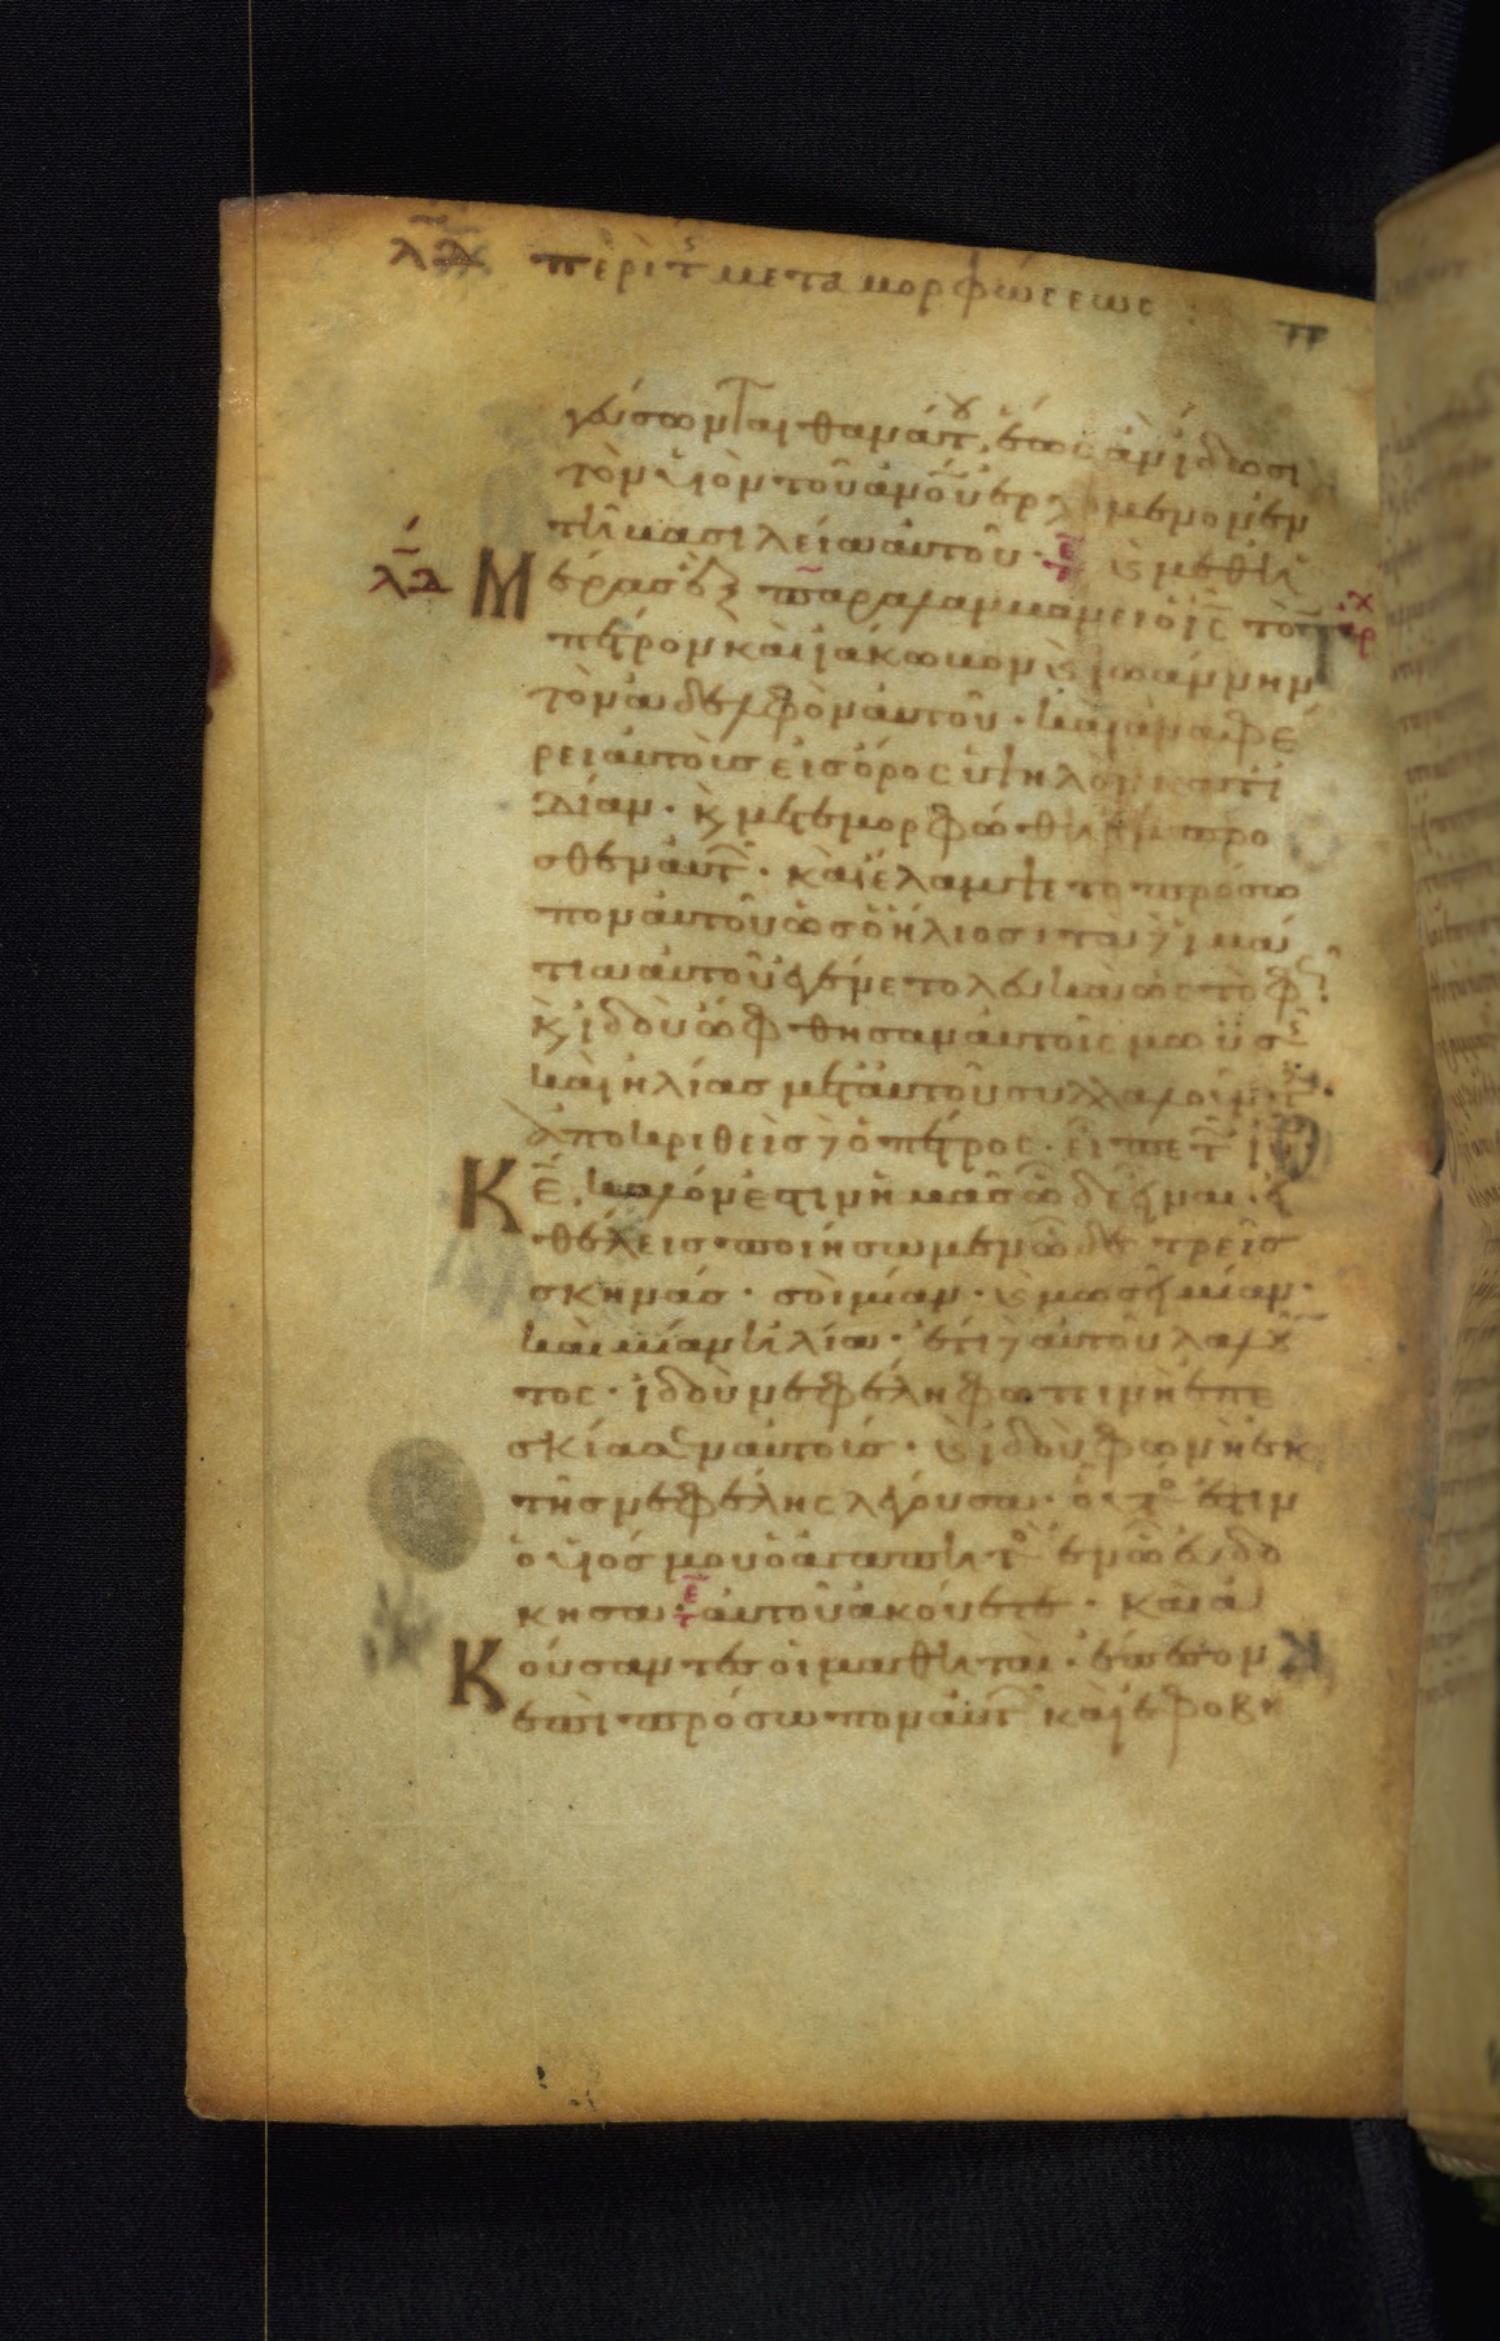 λδ περὶ τ̑ς μεταμορφώσεως :
γεύσωνται θανάτου, ἕως ἂν ἴδωσι
τὸν υἱὸν τοῦ ἀνο̅υ ἐρχόμενον ἐν
τῆ βασιλεία αὐτοῦ· τε ϛ μεθ ἡ
λδ Μέρας ἓξ παραλαμβάνει ὁ ις̅ τὸν
πέτρον καὶ ἰάκωβον ϛ ἰωάννην
τὸν ἀδελφὸν αὐτοῦ· καὶ ἀναφέ
ρει αὐτοὺσ εἰσ ὄρος ὑψηλὸν κατϊ
δίαν· κ μετεμορφώθη ἔμπρο
σθεν αὐτ̑· καὶ ἔλαμψε τὸ πρόσω
πον αὐτοῦ ὡσ ὁ ἥλιοσ· τὰ δὲ ἱμά
τια αὐτοῦ ἐγένετο λευκὰ ὡς τὸ φῶς
κ ἰδοὺ ὤφθησαν αὐτοῖς μωϋσῆς
καὶ ἠλίασ μετ αὐτοῦ συλλαλοῦντες·
ἀποκριθεὶσ δὲ ὁ πέτρος· εἶπε τ ιυ̅
Κε̅, καλόν ἐστιν ἡμᾶσ ὧδε εἶναι· εἰ
θέλεισ ποιήσωμεν ὧδε τρεῖσ
σκηνάσ· σοὶ μίαν· ϛ μωσῆ μίαν·
καὶ μίαν ἠλία· ἔτι δὲ αὐτοῦ λαλοῦν
τος· ἰδοὺ νεφέλη φωτινὴ ἐπε
σκίασεν αὐτοὺσ· ϛ ἰδοὺ φωνὴ ἐκ
τῆσ νεφέλης λέγουσα· οὗτός ἐστιν
ὁ υἱόσ μου ὁ ἀγαπητὸς ἐν ὧ εὐδό
κησα· τε αὐτοῦ ἀκούετε· καὶ ἀ
Κούσαντεσ οἱ μαθηταὶ· ἔπεσον
ἐπὶ πρόσωπον αὐτ̑ καὶ ἐφοβή